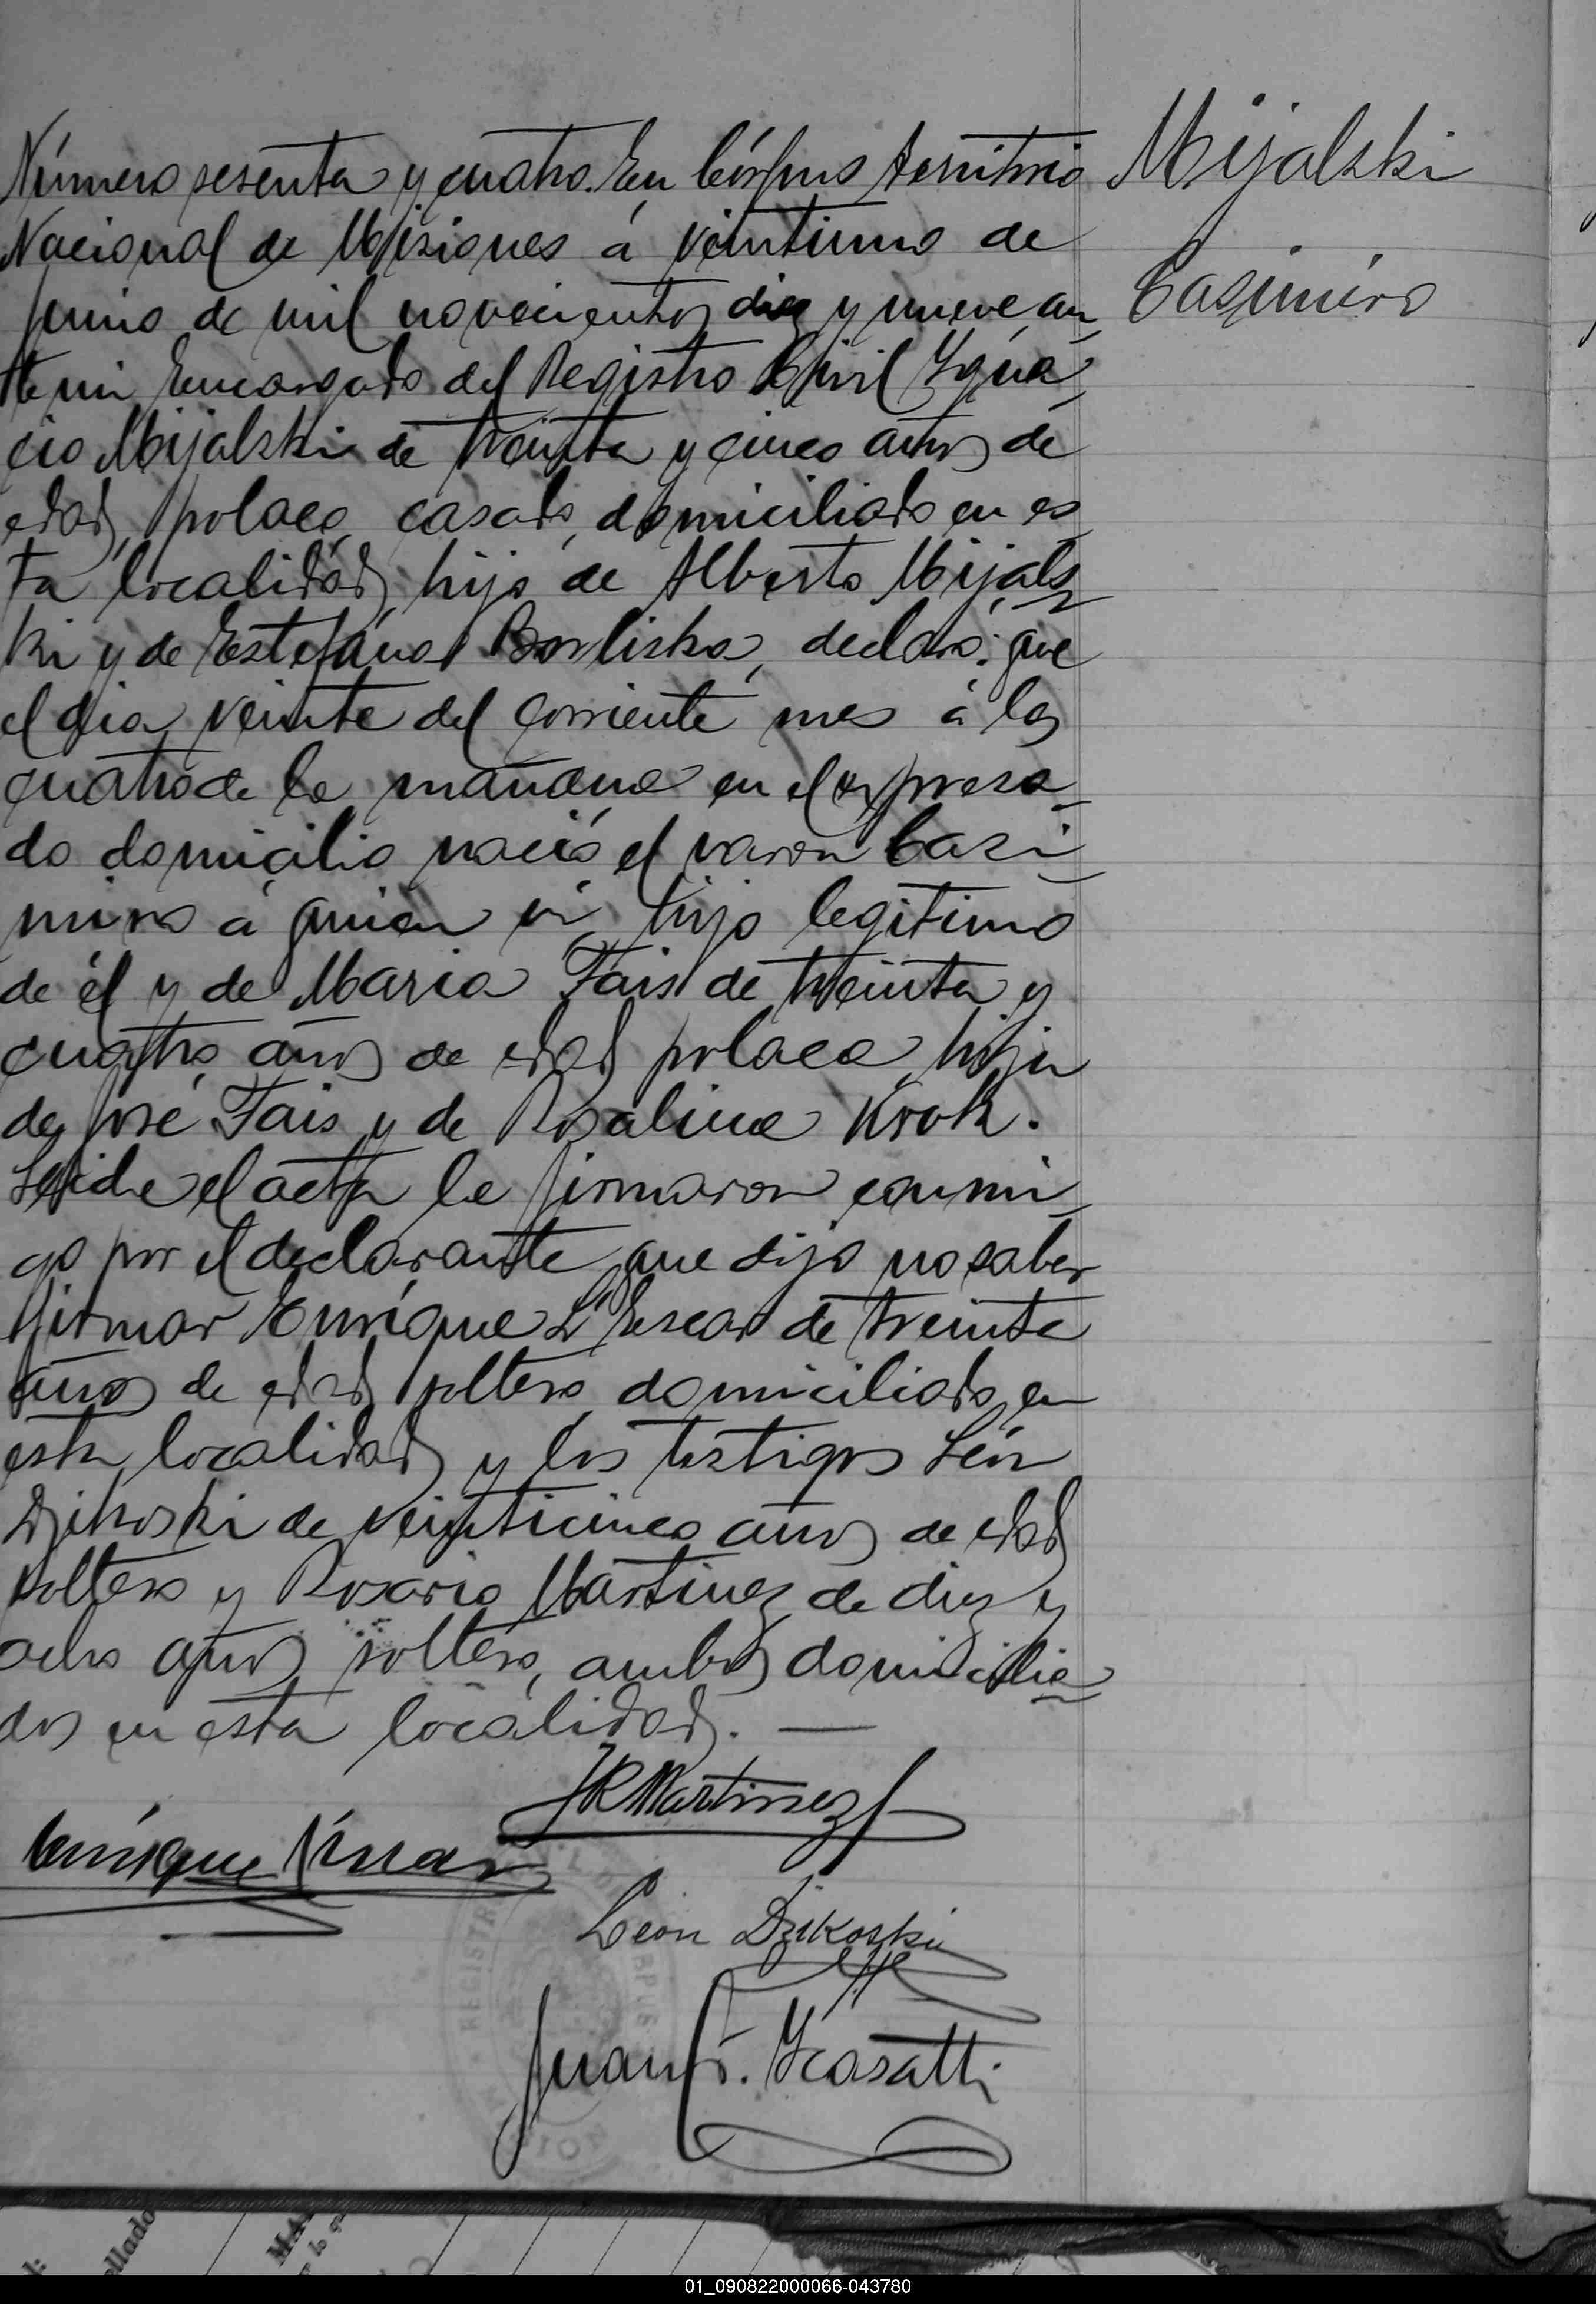 Número sesenta y cuatro. En Córpus territorio
Nacional de Misiones á veintiuno de
junio de mil novecientos diez y nueve an
te mi Encargado del Registro Civil Ygna
cio Mijalski de treinta y cinco años de
edad, polaco, casado, domiciliado en es
ta localidad, hijo de Alberto Mijals
ki y de Estefána declara: que
el dia veinte del corriente mes á las
cuatro de la mañana en el expresa
do domicilio nació el varon Casi
miro á quien ví, hijo legitimo
de él y de Maria Fais de treinta y
cuatro años de edad polaca, hija
de José Fais y de Rosalina Krok.
Leida el acta la firmaron conmi
go por el declarante que dijo no saber
firmar Enrique de treinta
años de edad soltero domiciliado en
esta localidad y los testigos León
Dzikoski de veinticinco años de edad
soltero y Rosario Martinez de diez y
ocho años soltero, ambos domicilia
dos en esta localidad. —
Mijalski
Casimiro
JR Martinez
Enrique
León Dzikoski
Juan
REGISTRO
01_090822000066-043780